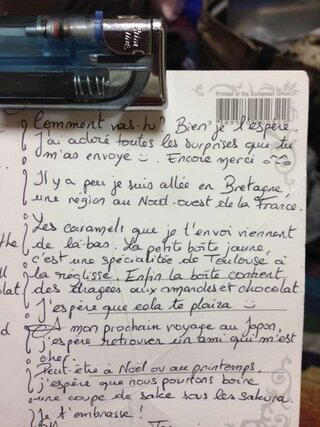 Printed in the European Union
Comment vas-tu? Bien je l'espère.
J'ai adoré toutes les surprises que tu
m'as envoyé ☺. Encore merci ^^
Il y a peu je suis allée en Bretagne
une région au Nord-ouest de la France.
Les caramels que je t'envoi viennent
the de là-bas. La petite boîte jaune
c'est une spécialitée de Toulouse à
lat la réglisse. Enfin la boîte contient
des dragées aux amandes et chocolat.
J'espère que cela te plaira ☺
d A mon prochain voyage au Japon,
j'espère retrouver un ami qui m'est
cher.
Peut-être à Noël ou au printemps.
j'espère que nous pourrons boire
une coupe de saké sous les sakura.
Je t'embrasse!